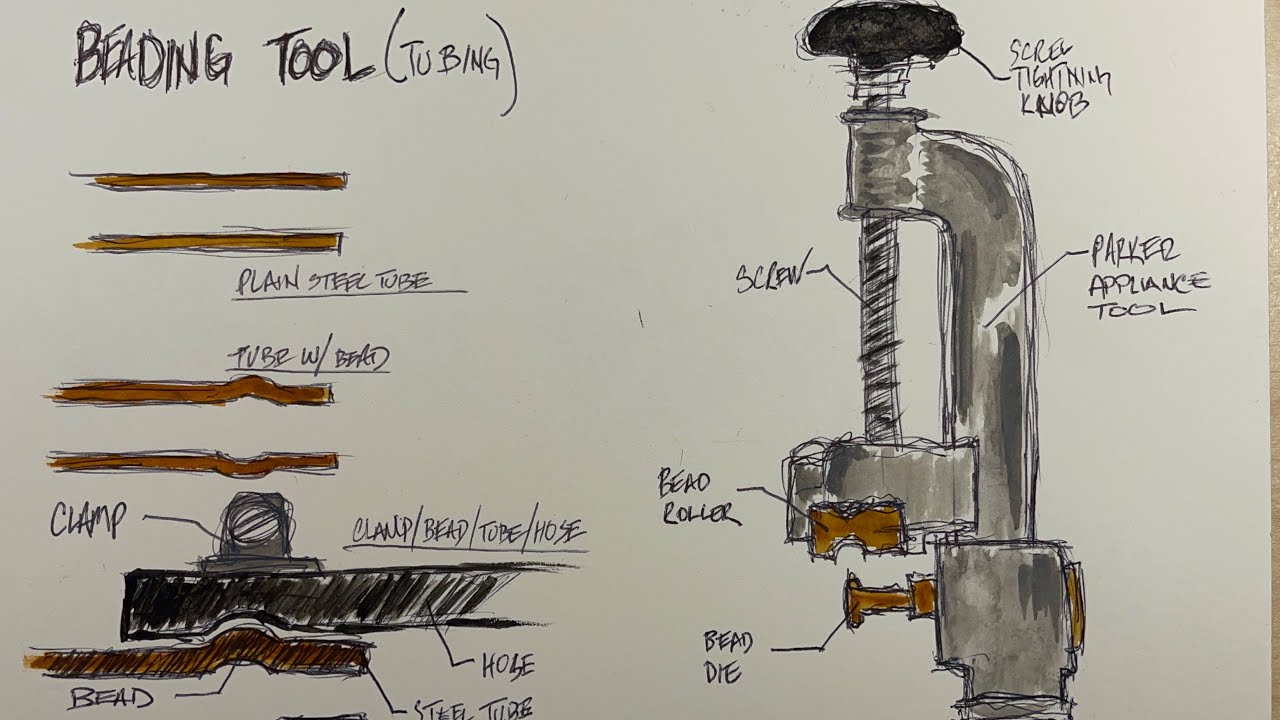 BEADING TOOL (TUBING)
PLAIN STEEL TUBE
TUBE W/ BEAD
CLAMP
CLAMP/BEAD/TUBE/HOSE
HOSE
BEAD
STEEL TUBE
SCREW
TIGHTNING
KNOB
SCREW
PARKER
APPLIANCE
TOOL
BEAD
ROLLER
BEAD
DIE